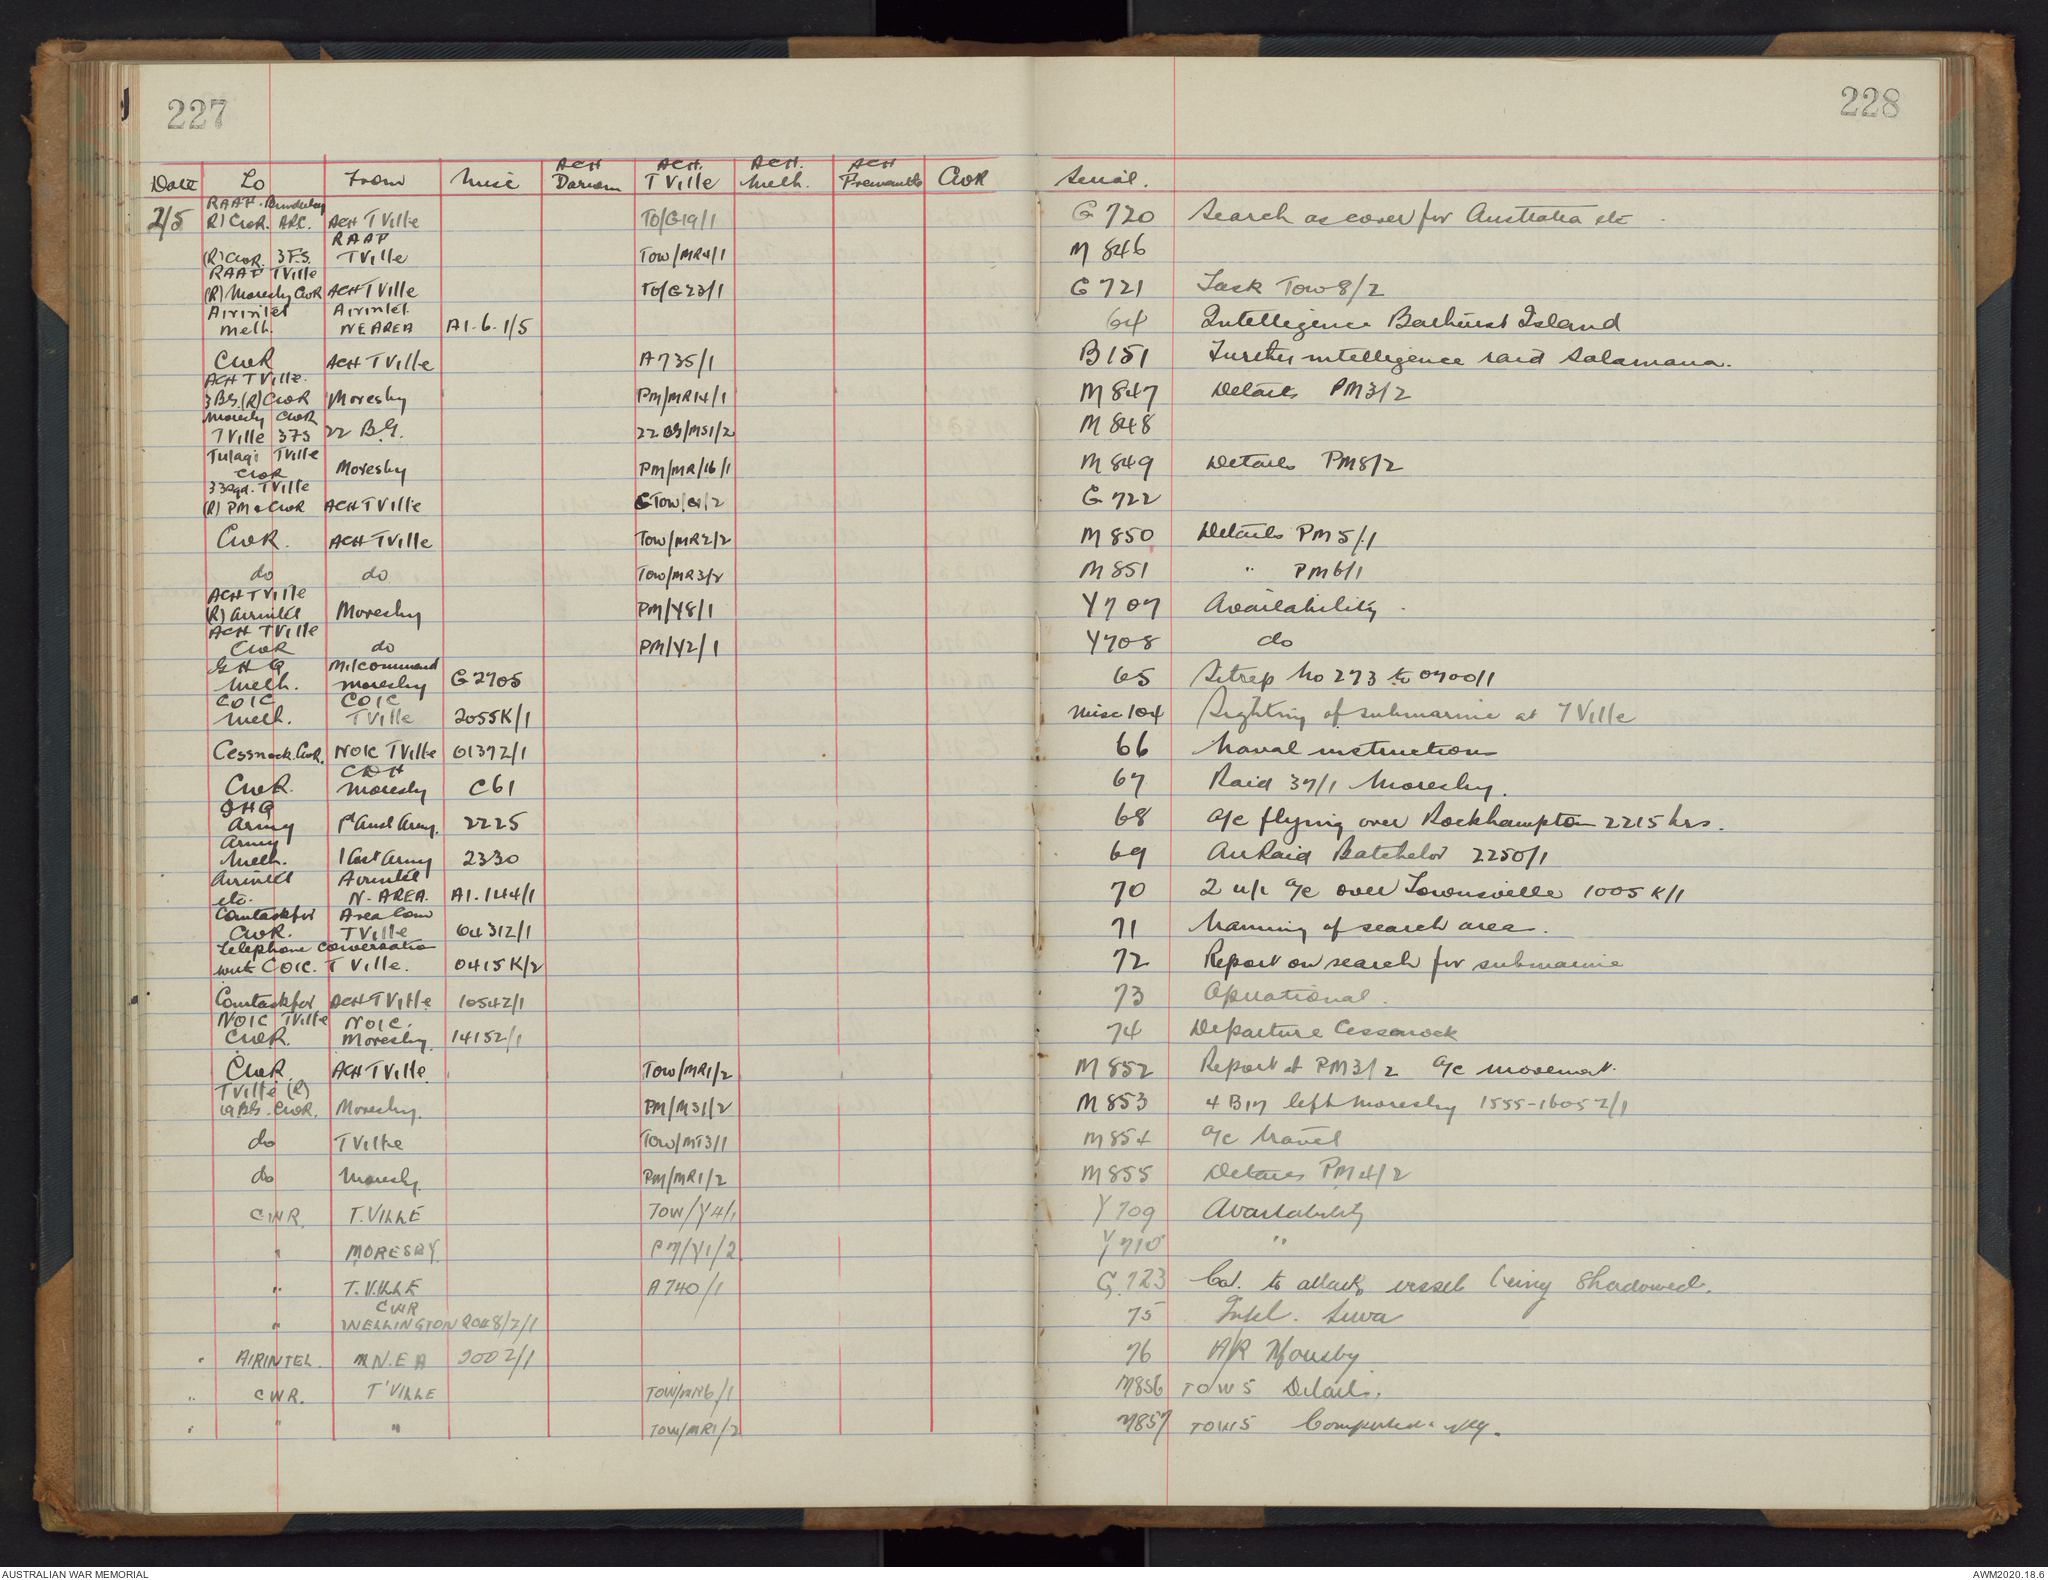 227
228
Date To From Misc ACH Darwin ACH. TVille ACH. Melb. ACH Fremantle CWR Serial.
RAAF.
2/5 R) CWR. ARC. ACH TVille TO/G19/1 G 720 Search as cover for Australia etc
RAAF
(R) CWR. 3 F.S. TVille TOW/MR4/1 M 846
RAAF TVille
(R) Moresby CWR ACH TVille TO/G23/1 G 721 Task Tow 8/2
Airintel Airintel.
Melb. NE AREA A1.6.1/5 64 Intelligence Bathurst Island
CWR ACH TVille A735/1 B151 Further intelligence raid Salamaua.
ACH TVille.
3 BS. (R) CWR Moresby PM/MR14/1 M 847 Details PM3/2
Moresby CWR
TVille 3FS 22 B.G. 22 BG/MS1/2 M 848
Tulagi TVille
CWR Moresby PM/MR/16/1 M 849 Details PM8/2
33 Sqd. TVille
(R) PM & CWR ACH TVille TOW/G1/2 G 722
CWR. ACH TVille TOW/MR2/2 M 850 Details PM5/1
do do TOW/MR3/2 M 851 " PM6/1
ACH TVille
(R) Airintel Moresby PM/Y8/1 Y707 Availability.
ACH TVille
CWR do PM/Y2/1 Y708 do
GHQ Milcommand
Melb. Moresby G2705 65 Sitrep No 273 to 0700/1
COIC COIC
Melb. TVille 2055K/1 Misc 104 Sighting of submarine at TVille
Cessnock. CWR. NOIC TVille 0137Z/1 66 Naval instructions
CDH
CWR. Moresby C61 67 Raid 37/1 Moresby.
GHQ
Army 1st Aust Army. 2225 68 a/c flying over Rockhampton 2215 hrs.
Army
Melb. 1 Aust Army 2330 69 Air Raid Batchelor 2250/1
Airintel Airintel
etc. N-AREA. A1.144/1 70 2 u/i a/c over Townsville 1005 K/1
Comtaskfor Area Com
CWR. TVille 0431Z/1 71 Naming of search area.
Telephone Conversation
with COIC. TVille. 0415K/2 72 Report on search for submarine
Comtaskfor ACH TVille 1054Z/1 73 Operational.
NOIC TVille NOIC.
CWR. Moresby. 1415Z/1 74 Departure Cessnock
CWR. ACH TVille. TOW/MR1/2 M 852 Report of PM3/2 a/c movement.
TVille (R)
19 BG. CWR. Moresby. PM/MS1/2 M 853 4 B17 left Moresby 1555-1605Z/1
do TVille TOW/MT3/1 M 854 a/c travel
do Moresby. PM/MR1/2 M 855 Details PM4/2
CWR. T.VILLE TOW/Y4/1 Y 709 Availability
" MORESBY. PM/Y1/2 Y 710 "
" T.VILLE A740/1 G.723 Cat. to attack vessel being Shadowed.
CWR
" WELLINGTON 2048/Z/1 75 Intel. Suva
" AIRINTEL. N.E A 2002/1 76 A/R Moresby
" CWR. T'VILLE TOW/MR6/1 M856 TOW 5 Details.
" " " TOW/MR1/2 M857 TOW5 Completed. neg.
AUSTRALIAN WAR MEMORIAL
AWM2020.18.6